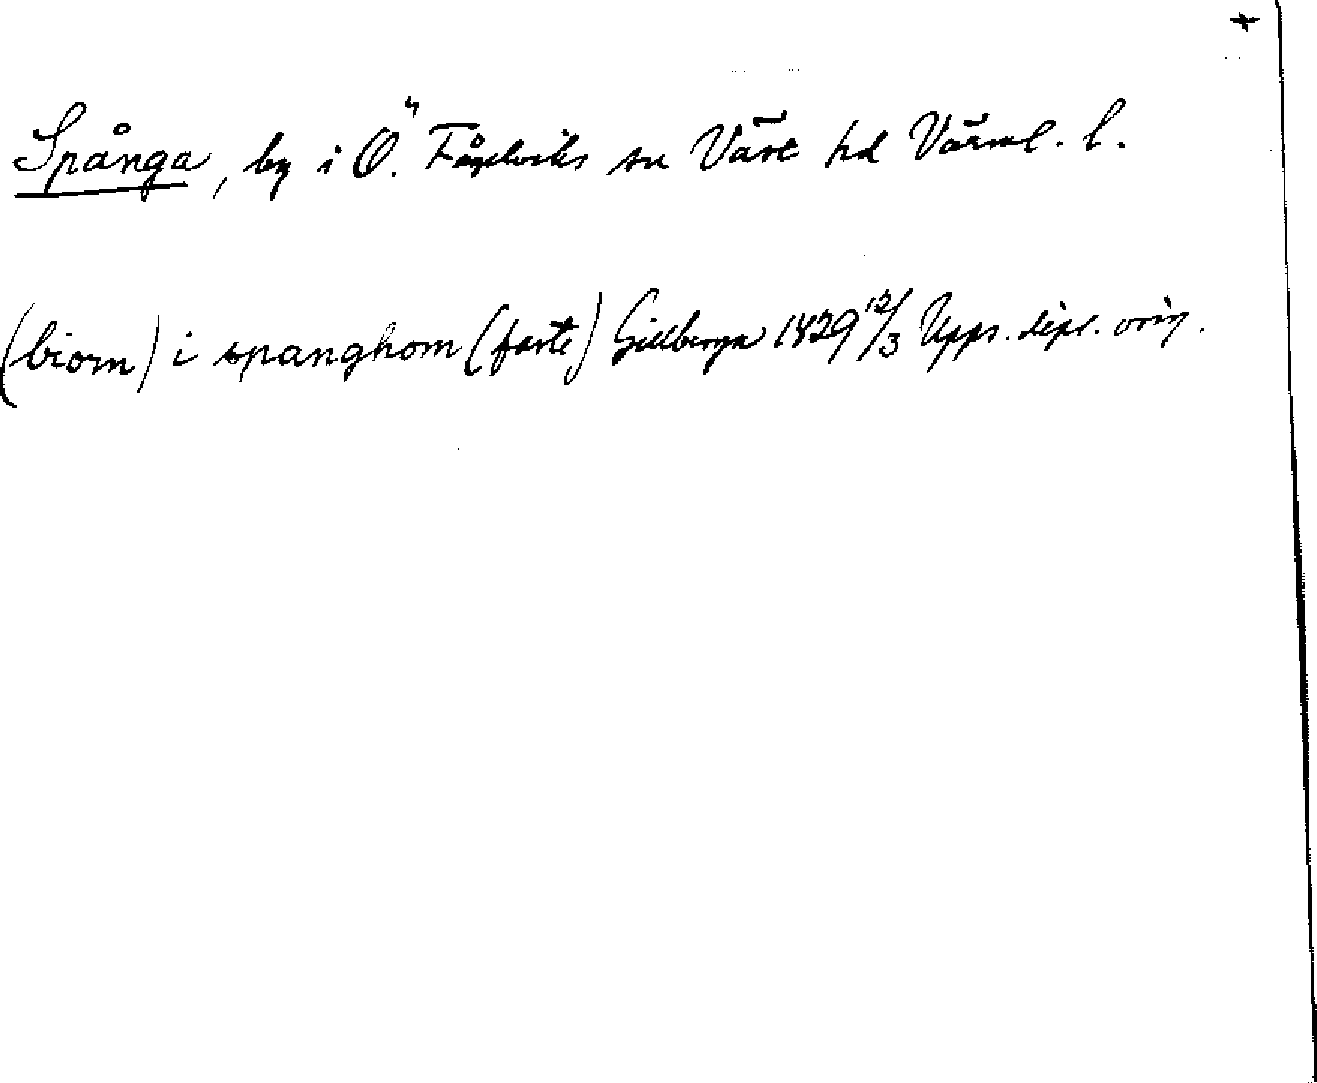 +
Spånga, by i Ö. Fågelviks sn Väse hd Värml. l.
(biorn) i spanghom (faste) Gillberga 1429 12/3 Upps. dipl. orig.